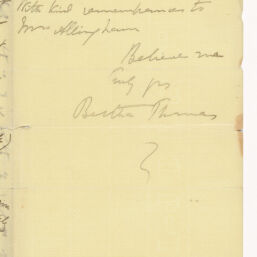 With kind remembrances to
Mrs Allingham
Believe me
Truly yrs
Bertha Thomas